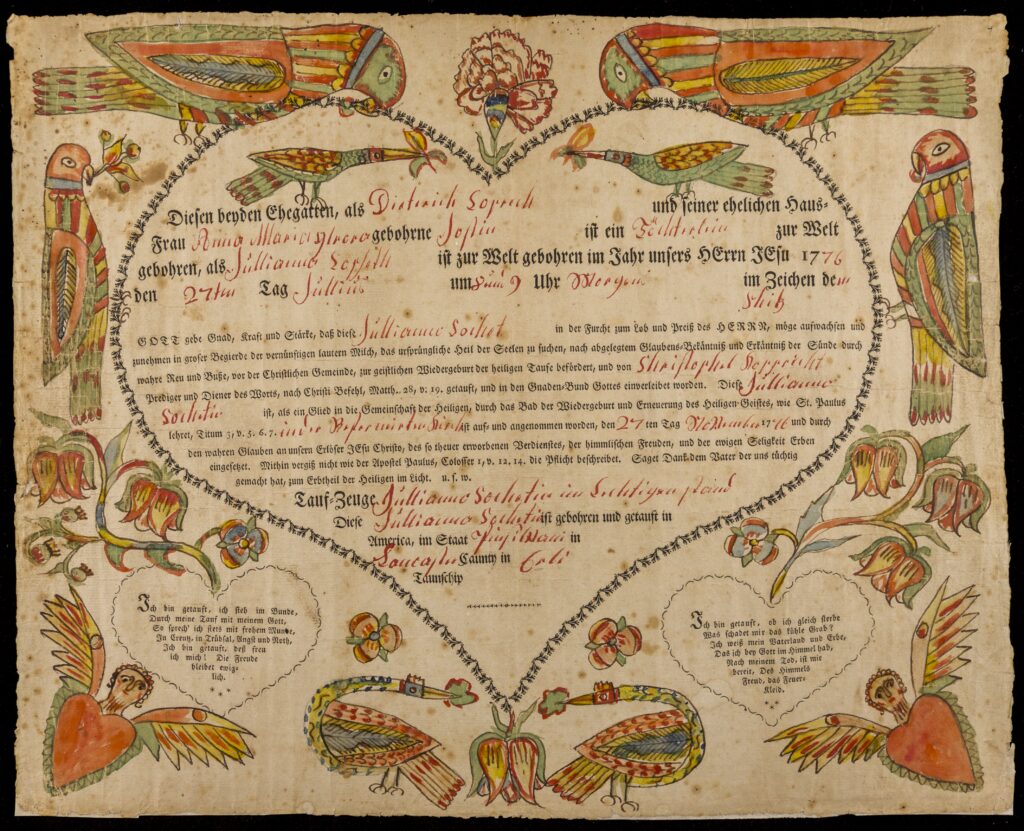 Diesen beyden Ehegatten, als Dieterich und seiner ehelichen Haus-
Frau Anna Maria gebohrne ist ein Töchterlein zur Welt
gebohren, als Jülliana ist zur Welt gebohren im Jahr unsers HErrn JEsu 1776
den 27ten Tag Jüllius um 9 Uhr Morgens im Zeichen dem
Shitz
GOTT gebe Gnad, Kraft und Stärke, daß diese Jülliana in der Furcht zum Lob und Preiß des HERRN, möge aufwachsen und
zunehmen in groser Begierde der vernünftigen lautern Milch, das ursprüngliche Heil der Seelen zu suchen, nach abgelegtem Glaubens-Bekäntniß und Erkäntniß der Sünde durch
wahre Reu und Buße, vor der Christlichen Gemeinde, zur geistlichen Wiedergeburt der heiligen Taufe befördert, und von Christophel
Prediger und Diener des Worts, nach Christi Befehl, Matth. 28, v. 19. getauft, und in den Gnaden-Bund Gottes einverleibet worden. Diese Jülliana
ist, als ein Glied in die Gemeinschaft der Heiligen, durch das Bad der Wiedergeburt und Erneuerung des Heiligen Geistes, wie St. Paulus
lehret, Titum 3, v. 5. 6. 7. in der ist auf- und angenommen worden, den 27 ten Tag 1776 und durch
den wahren Glauben an unsern Erlöser JEsu Christo, des so theuer erworbenen Verdienstes, der himmlischen Freuden, und der ewigen Seligkeit Erben
eingesetzt. Mithin vergiß nicht wie der Apostel Paulus, Colosser 1, v. 12. 14. die Pflicht beschreibet. Saget Dank dem Vater der uns tüchtig
gemacht hat, zum Erbtheil der Heiligen im Licht. u. s. w.
Tauf-Zeuge Jülliana im
Diese Jülliana ist gebohren und getauft in
America, im Staat in
Caunty in
Taunschip
Ich bin getauft, ich steh im Bunde,
Durch meine Tauf mit meinem Gott,
So sprech' ich stets mit frohem Munde,
In Creutz, in Trübsal, Angst und Noth,
Ich bin getauft, deß freu
ich mich! Die Freude
bleibet ewig-
lich.
Ich bin getauft, ob ich gleich sterbe
Was schadet mir das kühle Grab?
Ich weiß mein Vaterland und Erbe,
Das ich bey Gott im Himmel hab,
Nach meinem Tod, ist mir
bereit, Des Himmels
Freud, das Feuer-
Kleid.